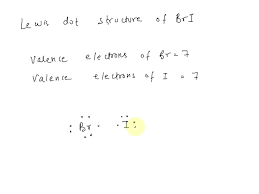 Lewis dot structure of BrI
Valence electrons of Br = 7
Valence electrons of I = 7
: Br · · I :